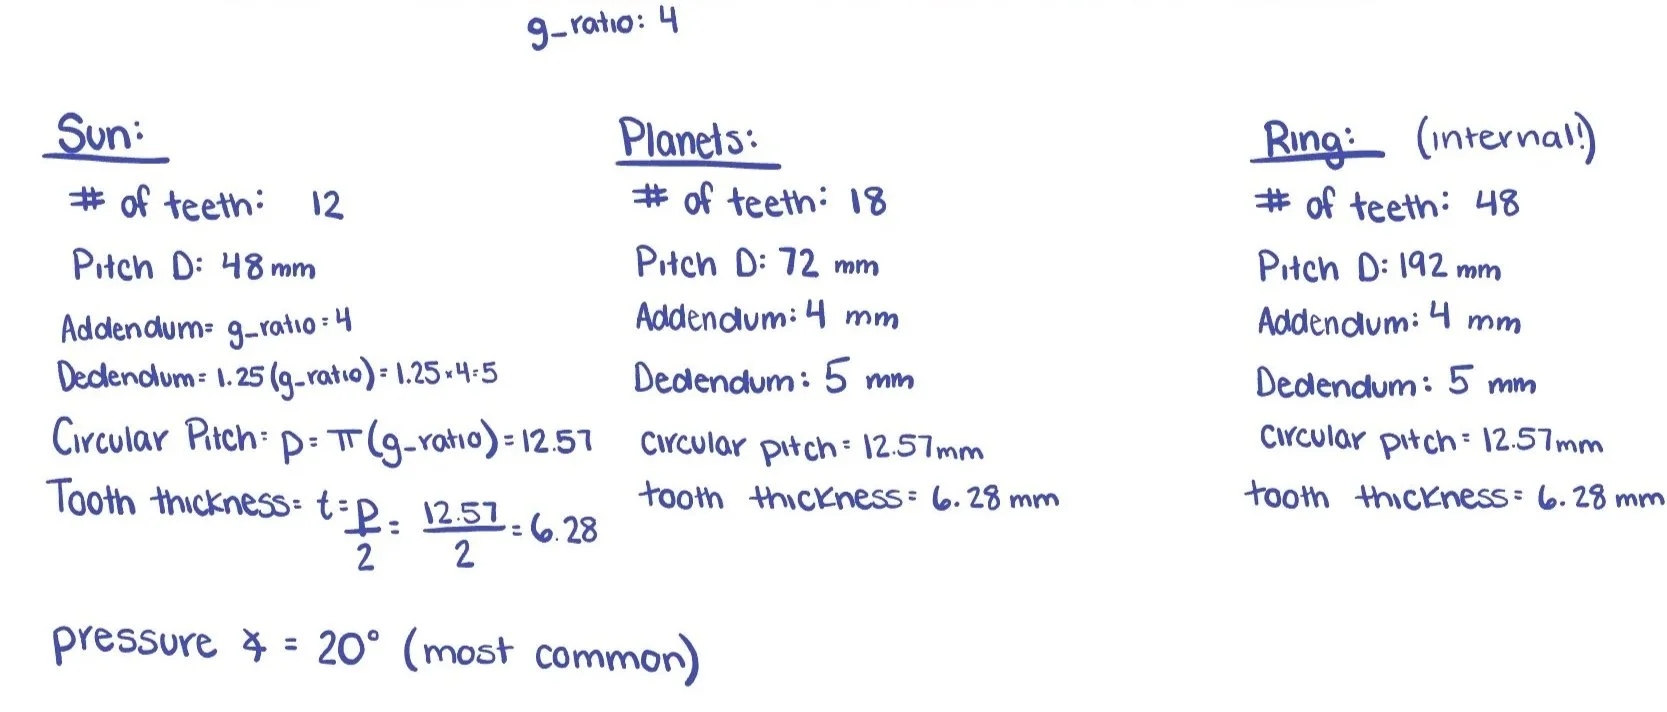 g_ratio: 4
Sun:
# of teeth: 12
Pitch D: 48 mm
Addendum= g_ratio = 4
Dedendum = 1.25 (g_ratio) = 1.25 × 4 = 5
Circular Pitch = p = π (g_ratio) = 12.57
Tooth thickness = t = p/2 = 12.57/2 = 6.28
Planets:
# of teeth: 18
Pitch D: 72 mm
Addendum: 4 mm
Dedendum: 5 mm
circular pitch = 12.57mm
tooth thickness = 6.28 mm
Ring: (internal!)
# of teeth: 48
Pitch D: 192 mm
Addendum: 4 mm
Dedendum: 5 mm
circular pitch = 12.57mm
tooth thickness = 6.28 mm
pressure ∡ = 20° (most common)